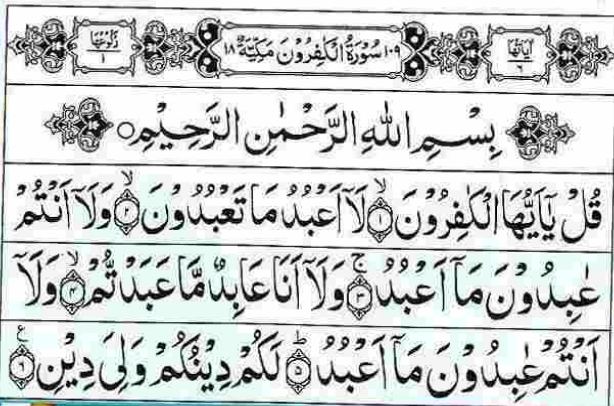 اٰیَاتُهَا ٦ ١٠٩ سُوْرَةُ الْكٰفِرُوْنَ مَكِّيَّةٌ ١٨ رُكُوْعُهَا ١
بِسْمِ اللهِ الرَّحْمٰنِ الرَّحِيْمِ
قُلْ يٰۤاَيُّهَا الْكٰفِرُوْنَ ۙ﴿١﴾ لَاۤ اَعْبُدُ مَا تَعْبُدُوْنَ ۙ﴿٢﴾ وَلَاۤ اَنْتُمْ
عٰبِدُوْنَ مَاۤ اَعْبُدُ ۚ﴿٣﴾ وَلَاۤ اَنَا عَابِدٌ مَّا عَبَدْتُّمْ ۙ﴿٤﴾ وَلَاۤ
اَنْتُمْ عٰبِدُوْنَ مَاۤ اَعْبُدُ ؕ﴿٥﴾ لَكُمْ دِيْنُكُمْ وَلِيَ دِيْنِ ﴿٦﴾ ع